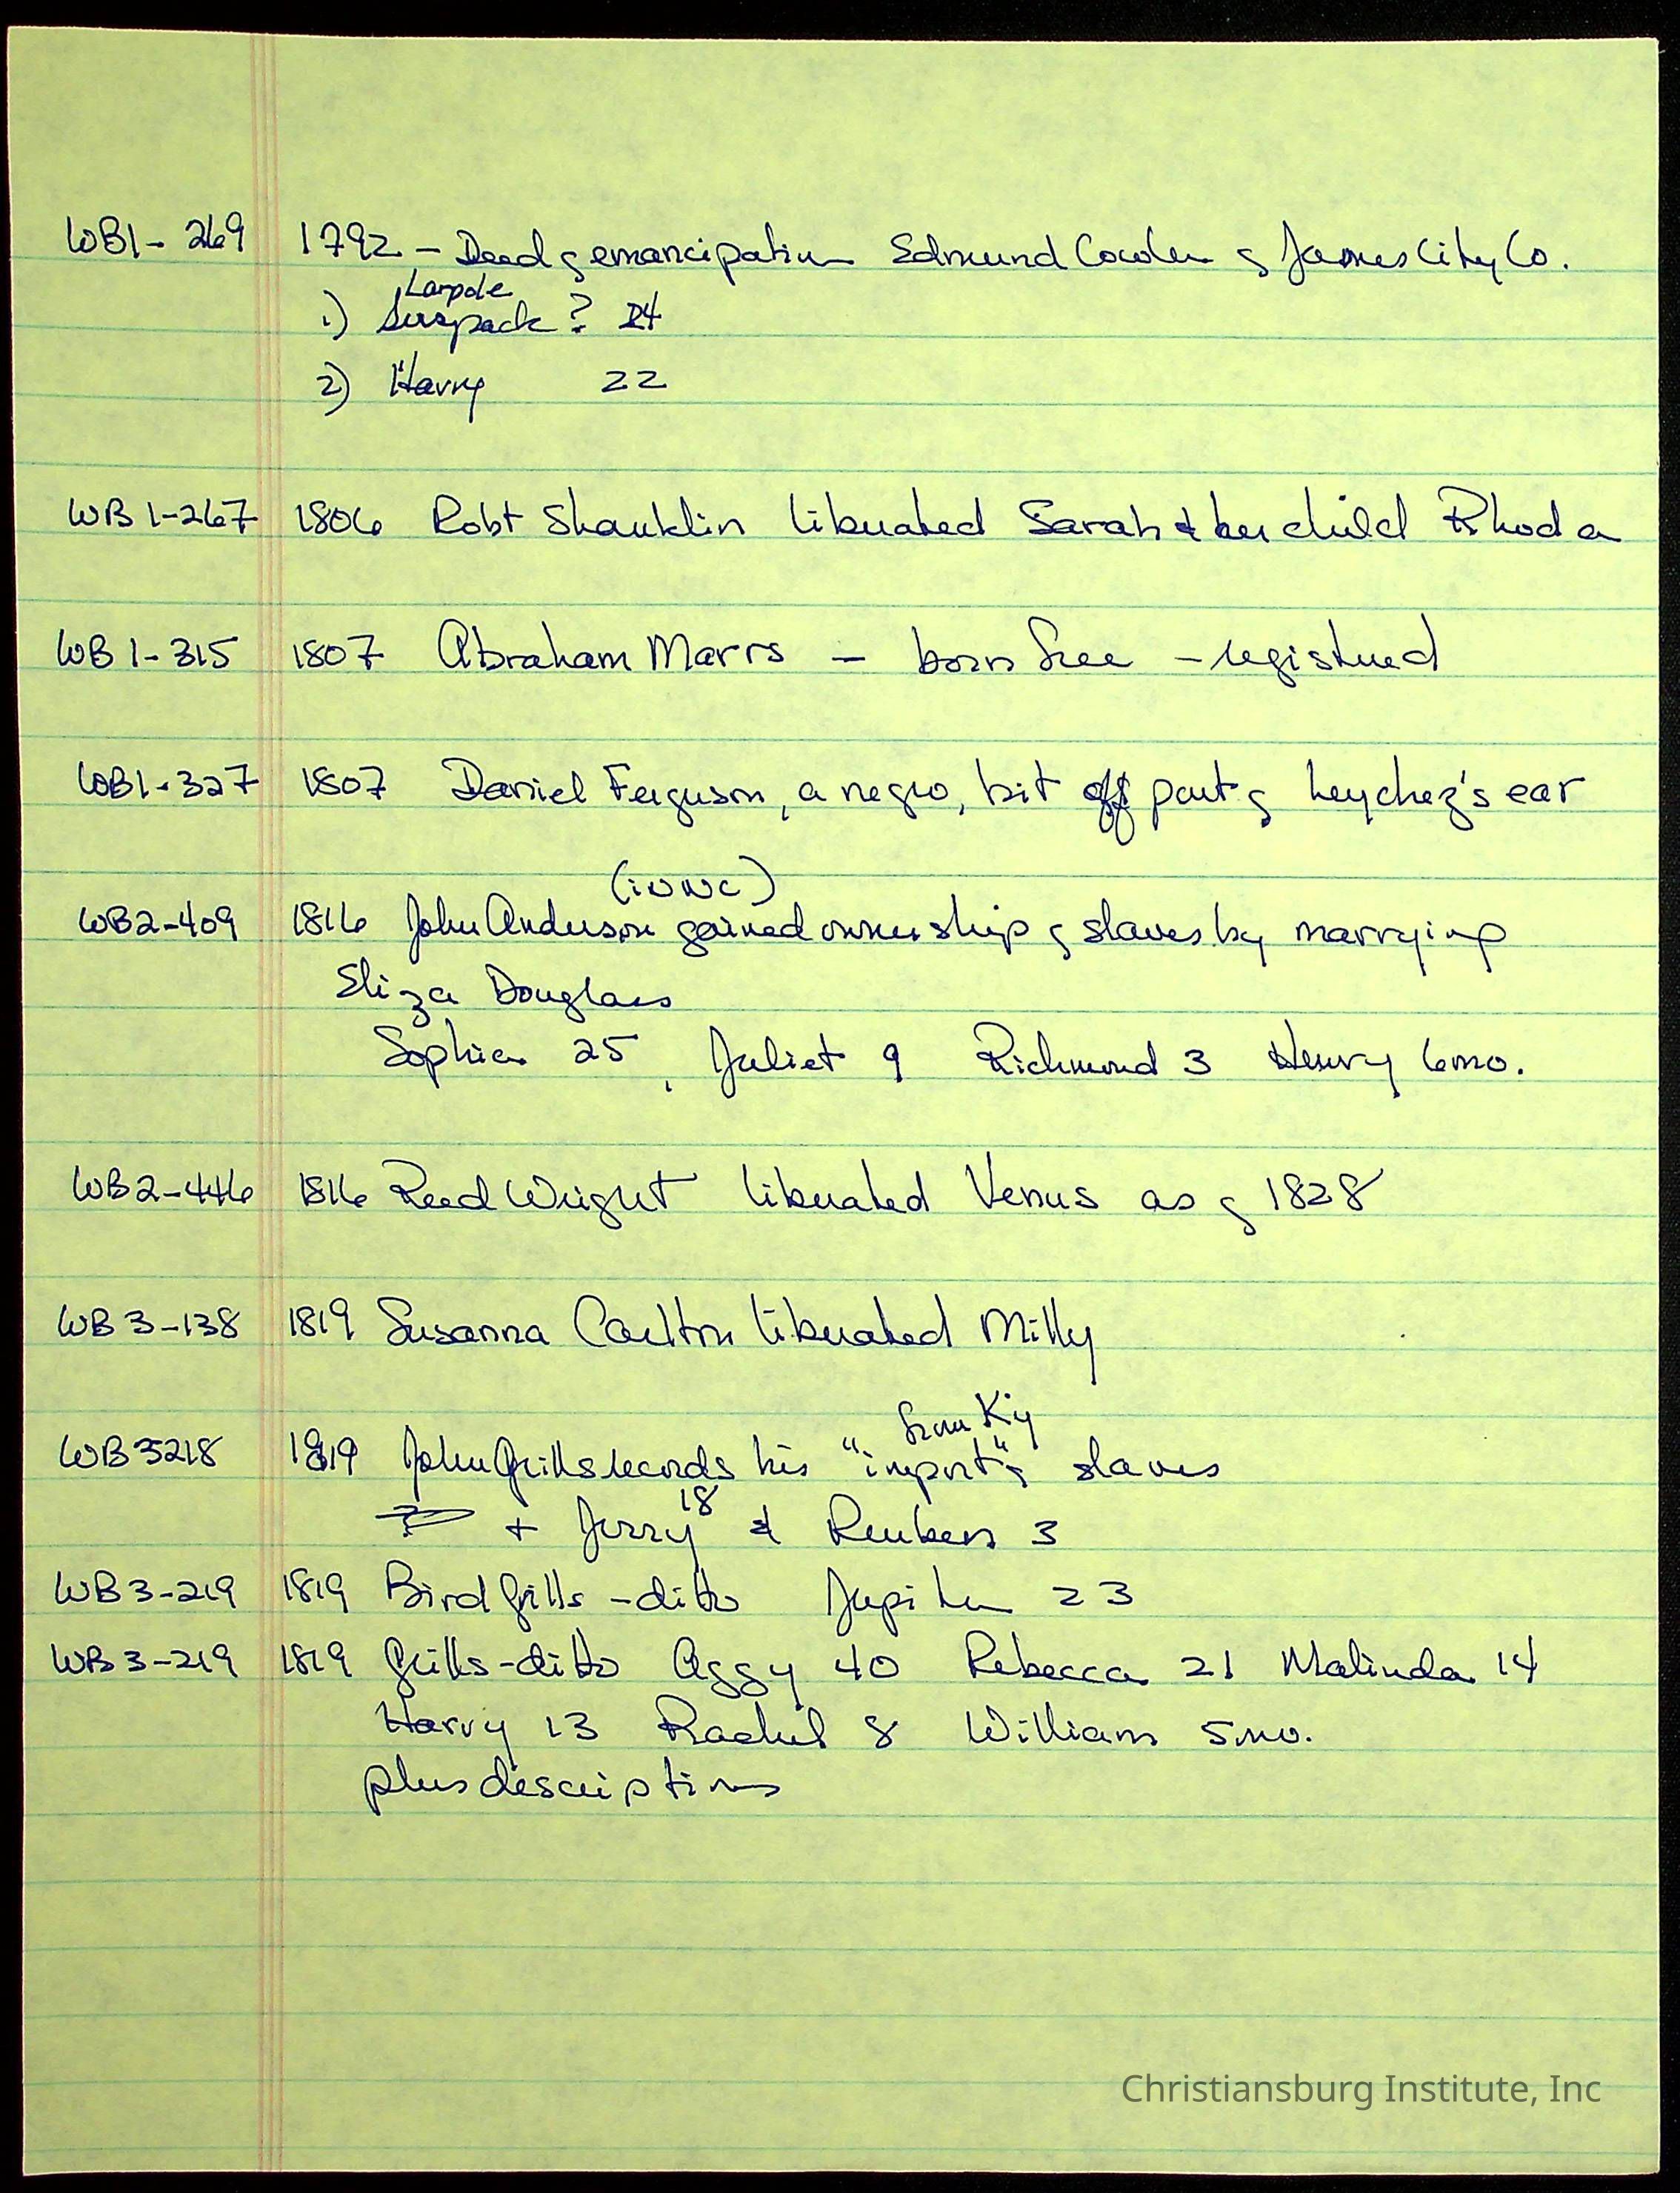 WB1-269 1792 - Deed of emancipation Edmund Cowles of James City Co.
Larpole
1) ? 24
2) Harry 22
WB 1-267 1806 Robt Shanklin liberated Sarah & her child Rhoda
WB 1-315 1807 Abraham Marrs - born free - registered
WB1-327 1807 Daniel Ferguson, a negro, bit off part of ear
(in NC)
WB2-409 1816 John Anderson gained ownership of slaves by marrying
Eliza Douglass
Sophia 25, Juliet 9 Richmond 3 Henry 6mo.
WB2-446 1816 Reed Wright liberated Venus as of 1828
WB 3-138 1819 Susanna Carlton liberated Milly
from Ky
WB 3218 1819 John Grills records his "import" of slaves
18
+ Jerry & Reuben 3
WB 3-219 1819 Bird Grills - ditto Jupiter 23
WB 3-219 1819 Grills - ditto Aggy 40 Rebecca 21 Malinda 14
Harry 13 Rachel 8 William 5mo.
plus descriptions
Christiansburg Institute, Inc